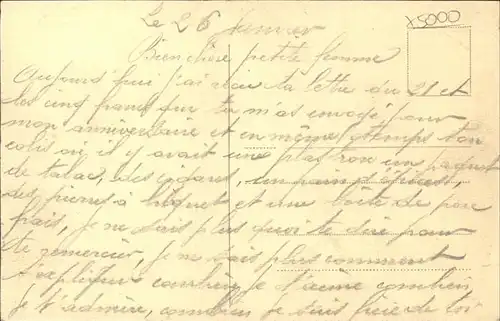 x5000
Le 26 Janvier
Bien chère petite femme
Aujourd'hui j'ai reçu ta lettre du 21 et
les cinq francs que tu m'as envoyé pour
mon anniversaire et en même temps ton
colis où il y avait une un paquet
de tabac, des cigares, un pain d'épices,
des pierres à briquet et une boîte de porc
frais, je ne sais plus quoi te dire pour
te remercier, je ne sais plus comment
t'expliquer combien je t'aime combien
je t'admire, combien je suis fier de toi